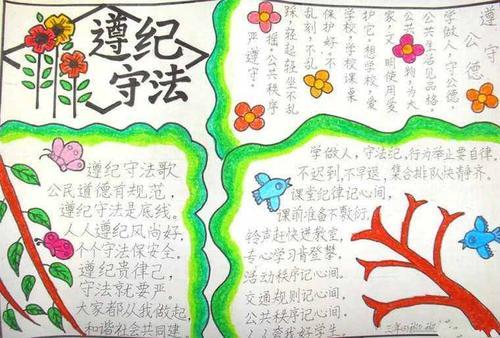 遵纪
守法
遵守公德
学做人，守公德，
公共生活见品格。
公共物，为大
家，明使用爱
护它，想学校，爱
学校，学校课桌
保护好，不
乱刻，不乱
踩，轻起轻坐不乱
摇，公共秩序
严遵守。
遵纪守法歌
公民道德有规范，
遵纪守法是底线。
人人遵纪风尚好，
个个守法保安全。
遵纪责律己，
守法就要严。
大家都从我做起，
和谐社会共同建。
学做人，守法纪，行为举止要自律，
不迟到，不早退，集合排队快静齐，
课堂纪律记心间，
课前准备不敷衍。
铃声赶快进教室，
专心学习肯登攀，
活动秩序记心间，
交通规则记心间，
公共秩序记心间，
好学生。
三年四